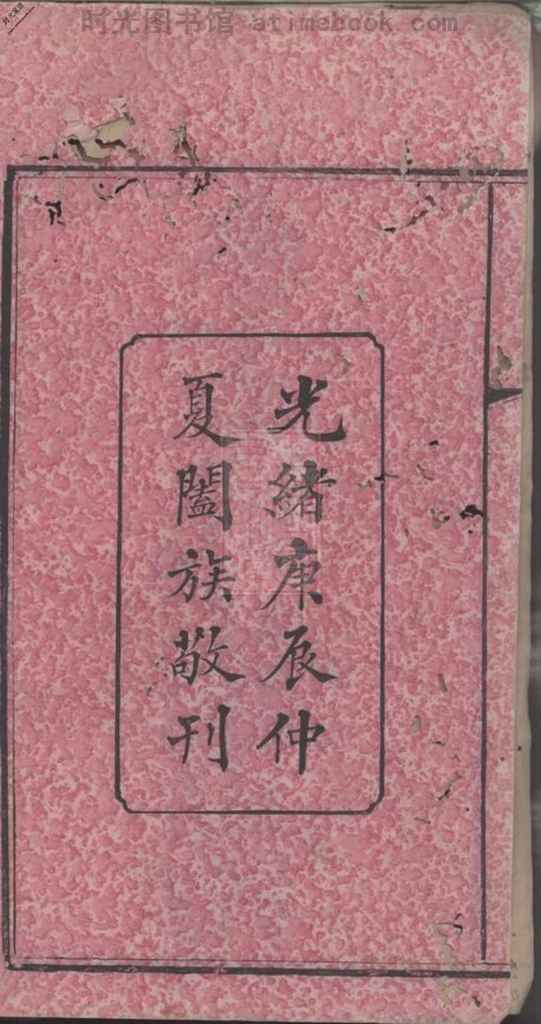 时光图书馆 atimebook.com
光緒庚辰仲
夏闔族敬刊